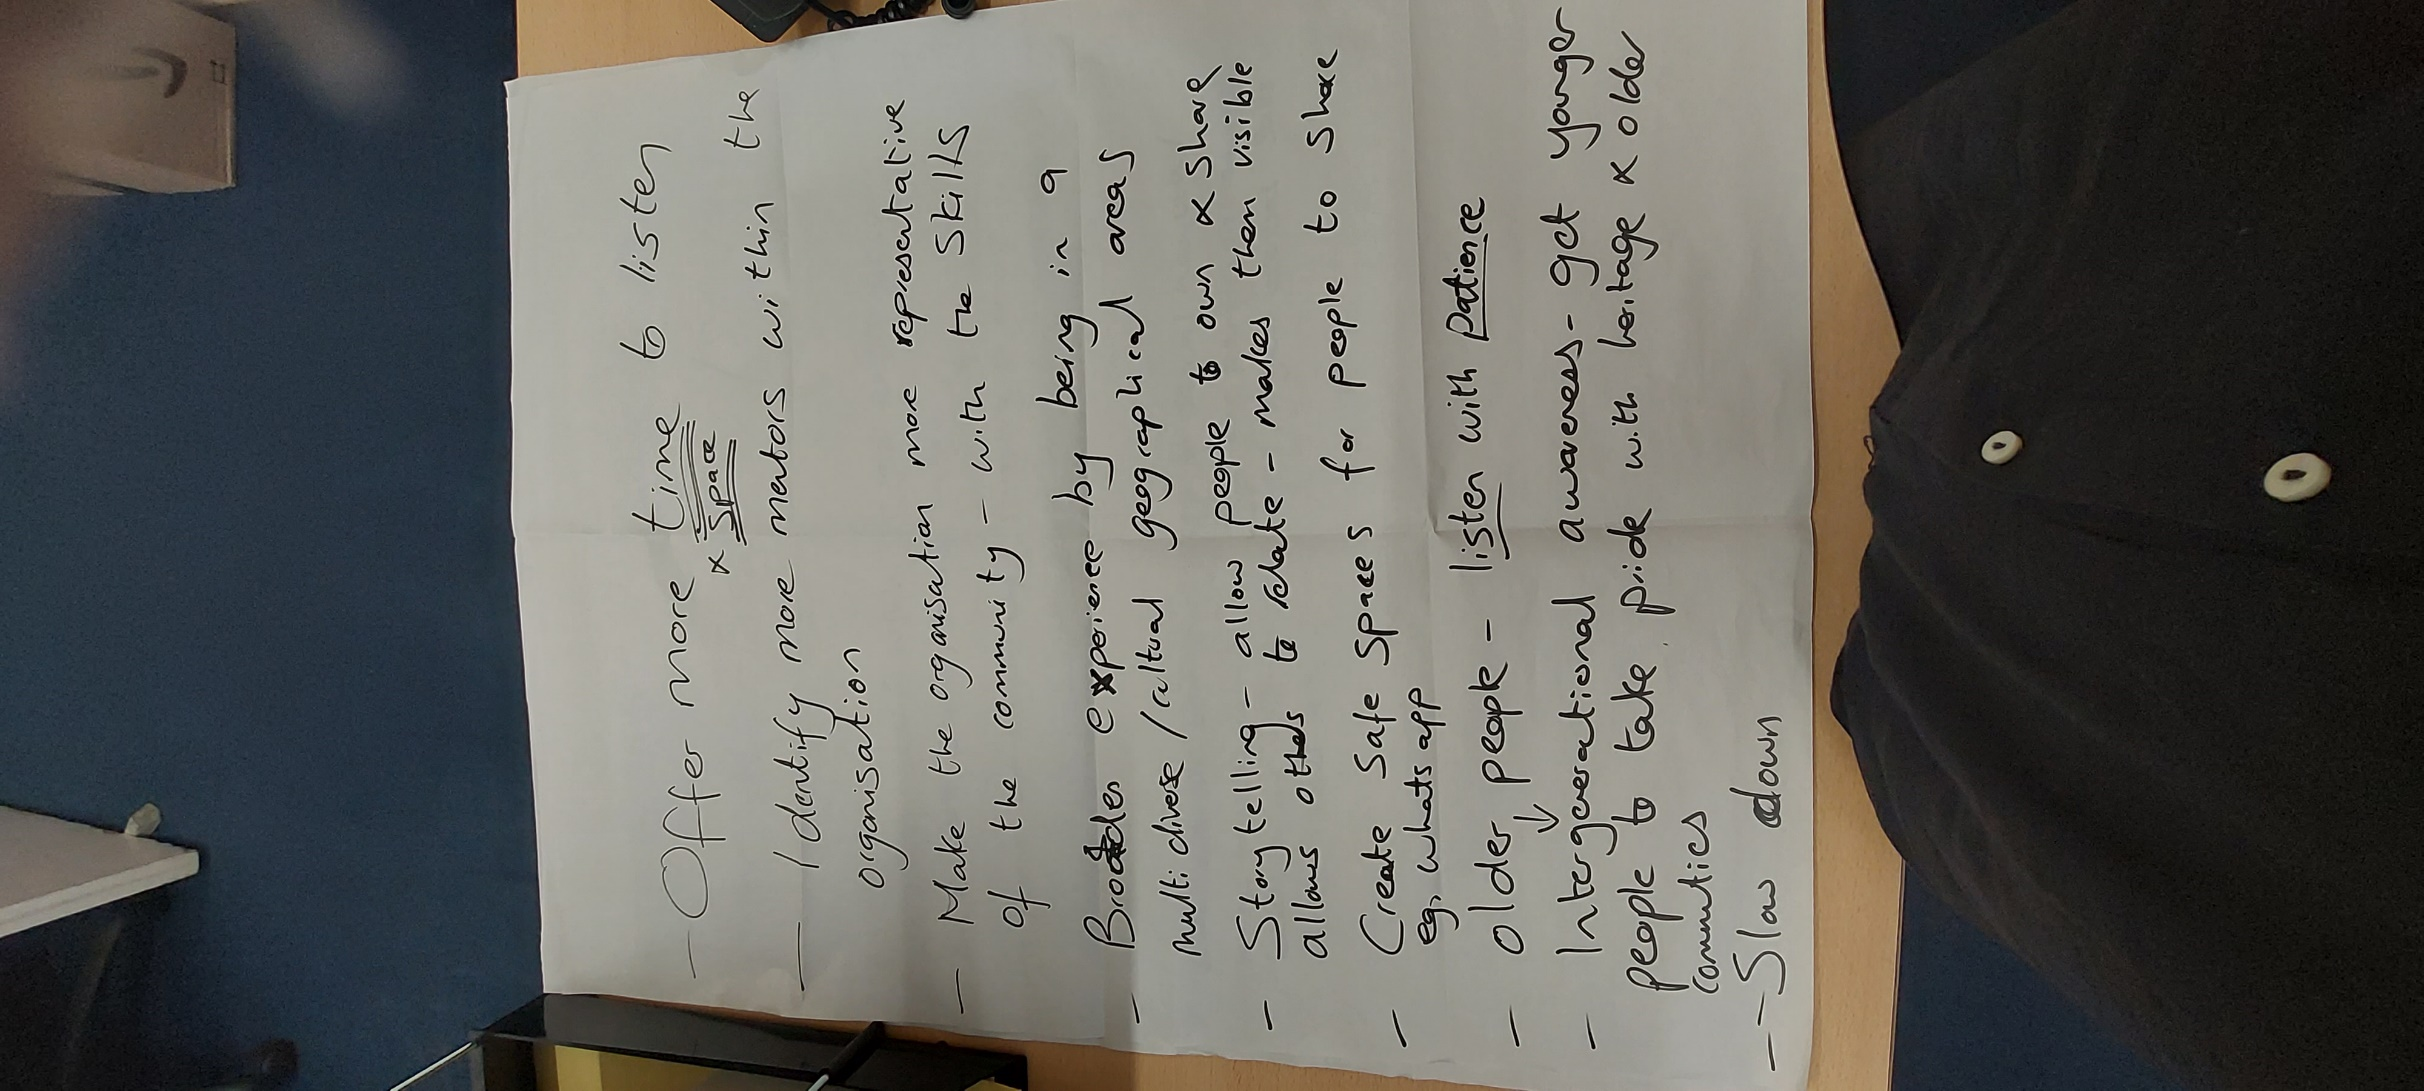 - Offer more time to listen
& space
- Identify more mentors within the
organisation
- Make the organisation more representative
of the community - with the skills
- Broaden experience by being in a
multi diverse/cultural geographical areas
- Storytelling - allow people to own & share
allows others to relate - makes them visible
- Create safe spaces for people to share
eg. whatsapp
- older people - listen with patience
- Intergenerational awareness - get younger
people to take pride with heritage & older
communities
- Slow down